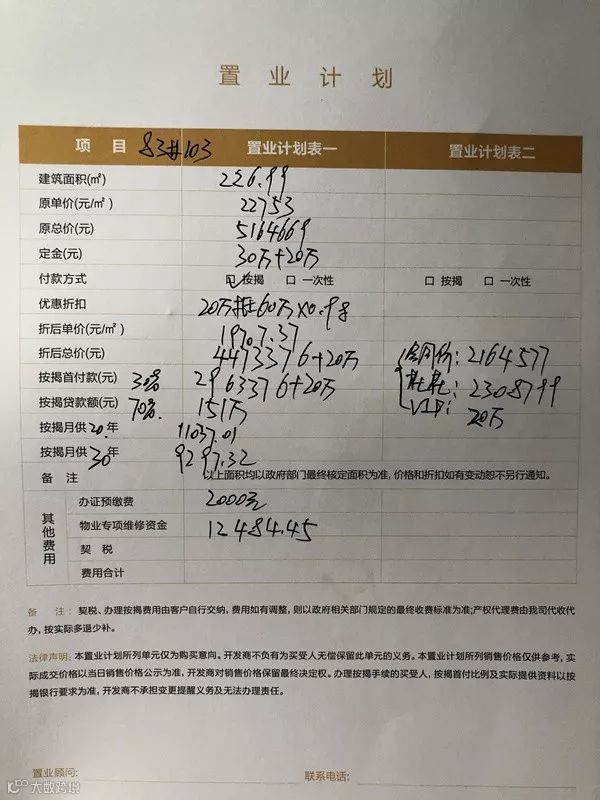 置业计划
项目 83#103 置业计划表一 置业计划表二
建筑面积(㎡) 226.99
原单价(元/㎡) 22753
原总价(元) 5164669
定金(元) 30万+20万
付款方式 口 按揭 口 一次性 口 按揭 口 一次性
优惠折扣 20万抵60万×0.98
折后单价(元/㎡) 19707.37
折后总价(元) 4473376+20万 合同价:2164577
按揭首付款(元) 30% 2963376+20万 2308799
按揭贷款额(元) 70% 151万 VIP: 20万
按揭月供20年 11037.01
按揭月供30年 9297.32
备 注 以上面积均以政府部门最终核定面积为准,价格和折扣如有变动恕不另行通知。
其他费用
办证预缴费 2000元
物业专项维修资金 12484.45
契 税
费用合计
备 注:契税、办理按揭费用由客户自行交纳,费用如有调整,则以政府相关部门规定的最终收费标准为准;产权代理费由我司代收代
办,按实际多退少补。
法律声明:本置业计划所列单元仅为购买意向。开发商不负有为买受人无偿保留此单元的义务。本置业计划所列销售价格仅供参考,实
际成交价格以当日销售价格公示为准,开发商对销售价格保留最终决定权。办理按揭手续的买受人,按揭首付比例及实际提供资料以按
揭银行要求为准,开发商不承担变更提醒义务及无法办理责任。
置业顾问: 联系电话:
大数跨境